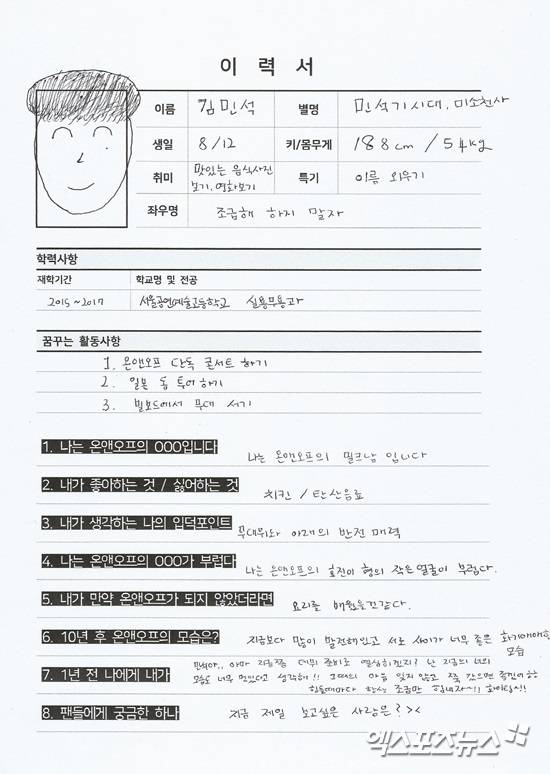 이 력 서
이름 김민석 별명 민석기시대, 미소천사
생일 8/12 키/몸무게 188cm / 54kg
취미 맛있는 음식사진 보기, 영화보기 특기 이름 외우기
좌우명 조급해 하지 말자
학력사항
재학기간 학교명 및 전공
2015~2017 서울공연예술고등학교 실용무용과
꿈꾸는 활동사항
1. 온앤오프 단독 콘서트 하기
2. 일본 돔 투어 하기
3. 빌보드에서 무대 서기
1. 나는 온앤오프의 OOO입니다 나는 온앤오프의 밀크남 입니다
2. 내가 좋아하는 것 / 싫어하는 것 치킨 / 탄산음료
3. 내가 생각하는 나의 입덕포인트 무대위와 아래의 반전 매력
4. 나는 온앤오프의 OOO가 부럽다 나는 온앤오프의 효진이 형의 작은 얼굴이 부럽다.
5. 내가 만약 온앤오프가 되지 않았더라면 요리를 배웠을것같다.
6. 10년 후 온앤오프의 모습은? 지금보다 많이 발전해있고 서로 사이가 너무 좋은 화기애애한
모습
7. 1년 전 나에게 내가 민석아.. 아마 지금쯤 데뷔 준비로 열심히겠지? 난 지금의 너의
모습도 너무 멋있다고 생각해!! 그때의 마음 잊지 않고 쭉 갔으면 좋겠어
힘들때마다 항상 조금만 힘내자~!! 화이팅!!
8. 팬들에게 궁금한 하나 지금 제일 보고싶은 사람은? ><
엑스포츠뉴스